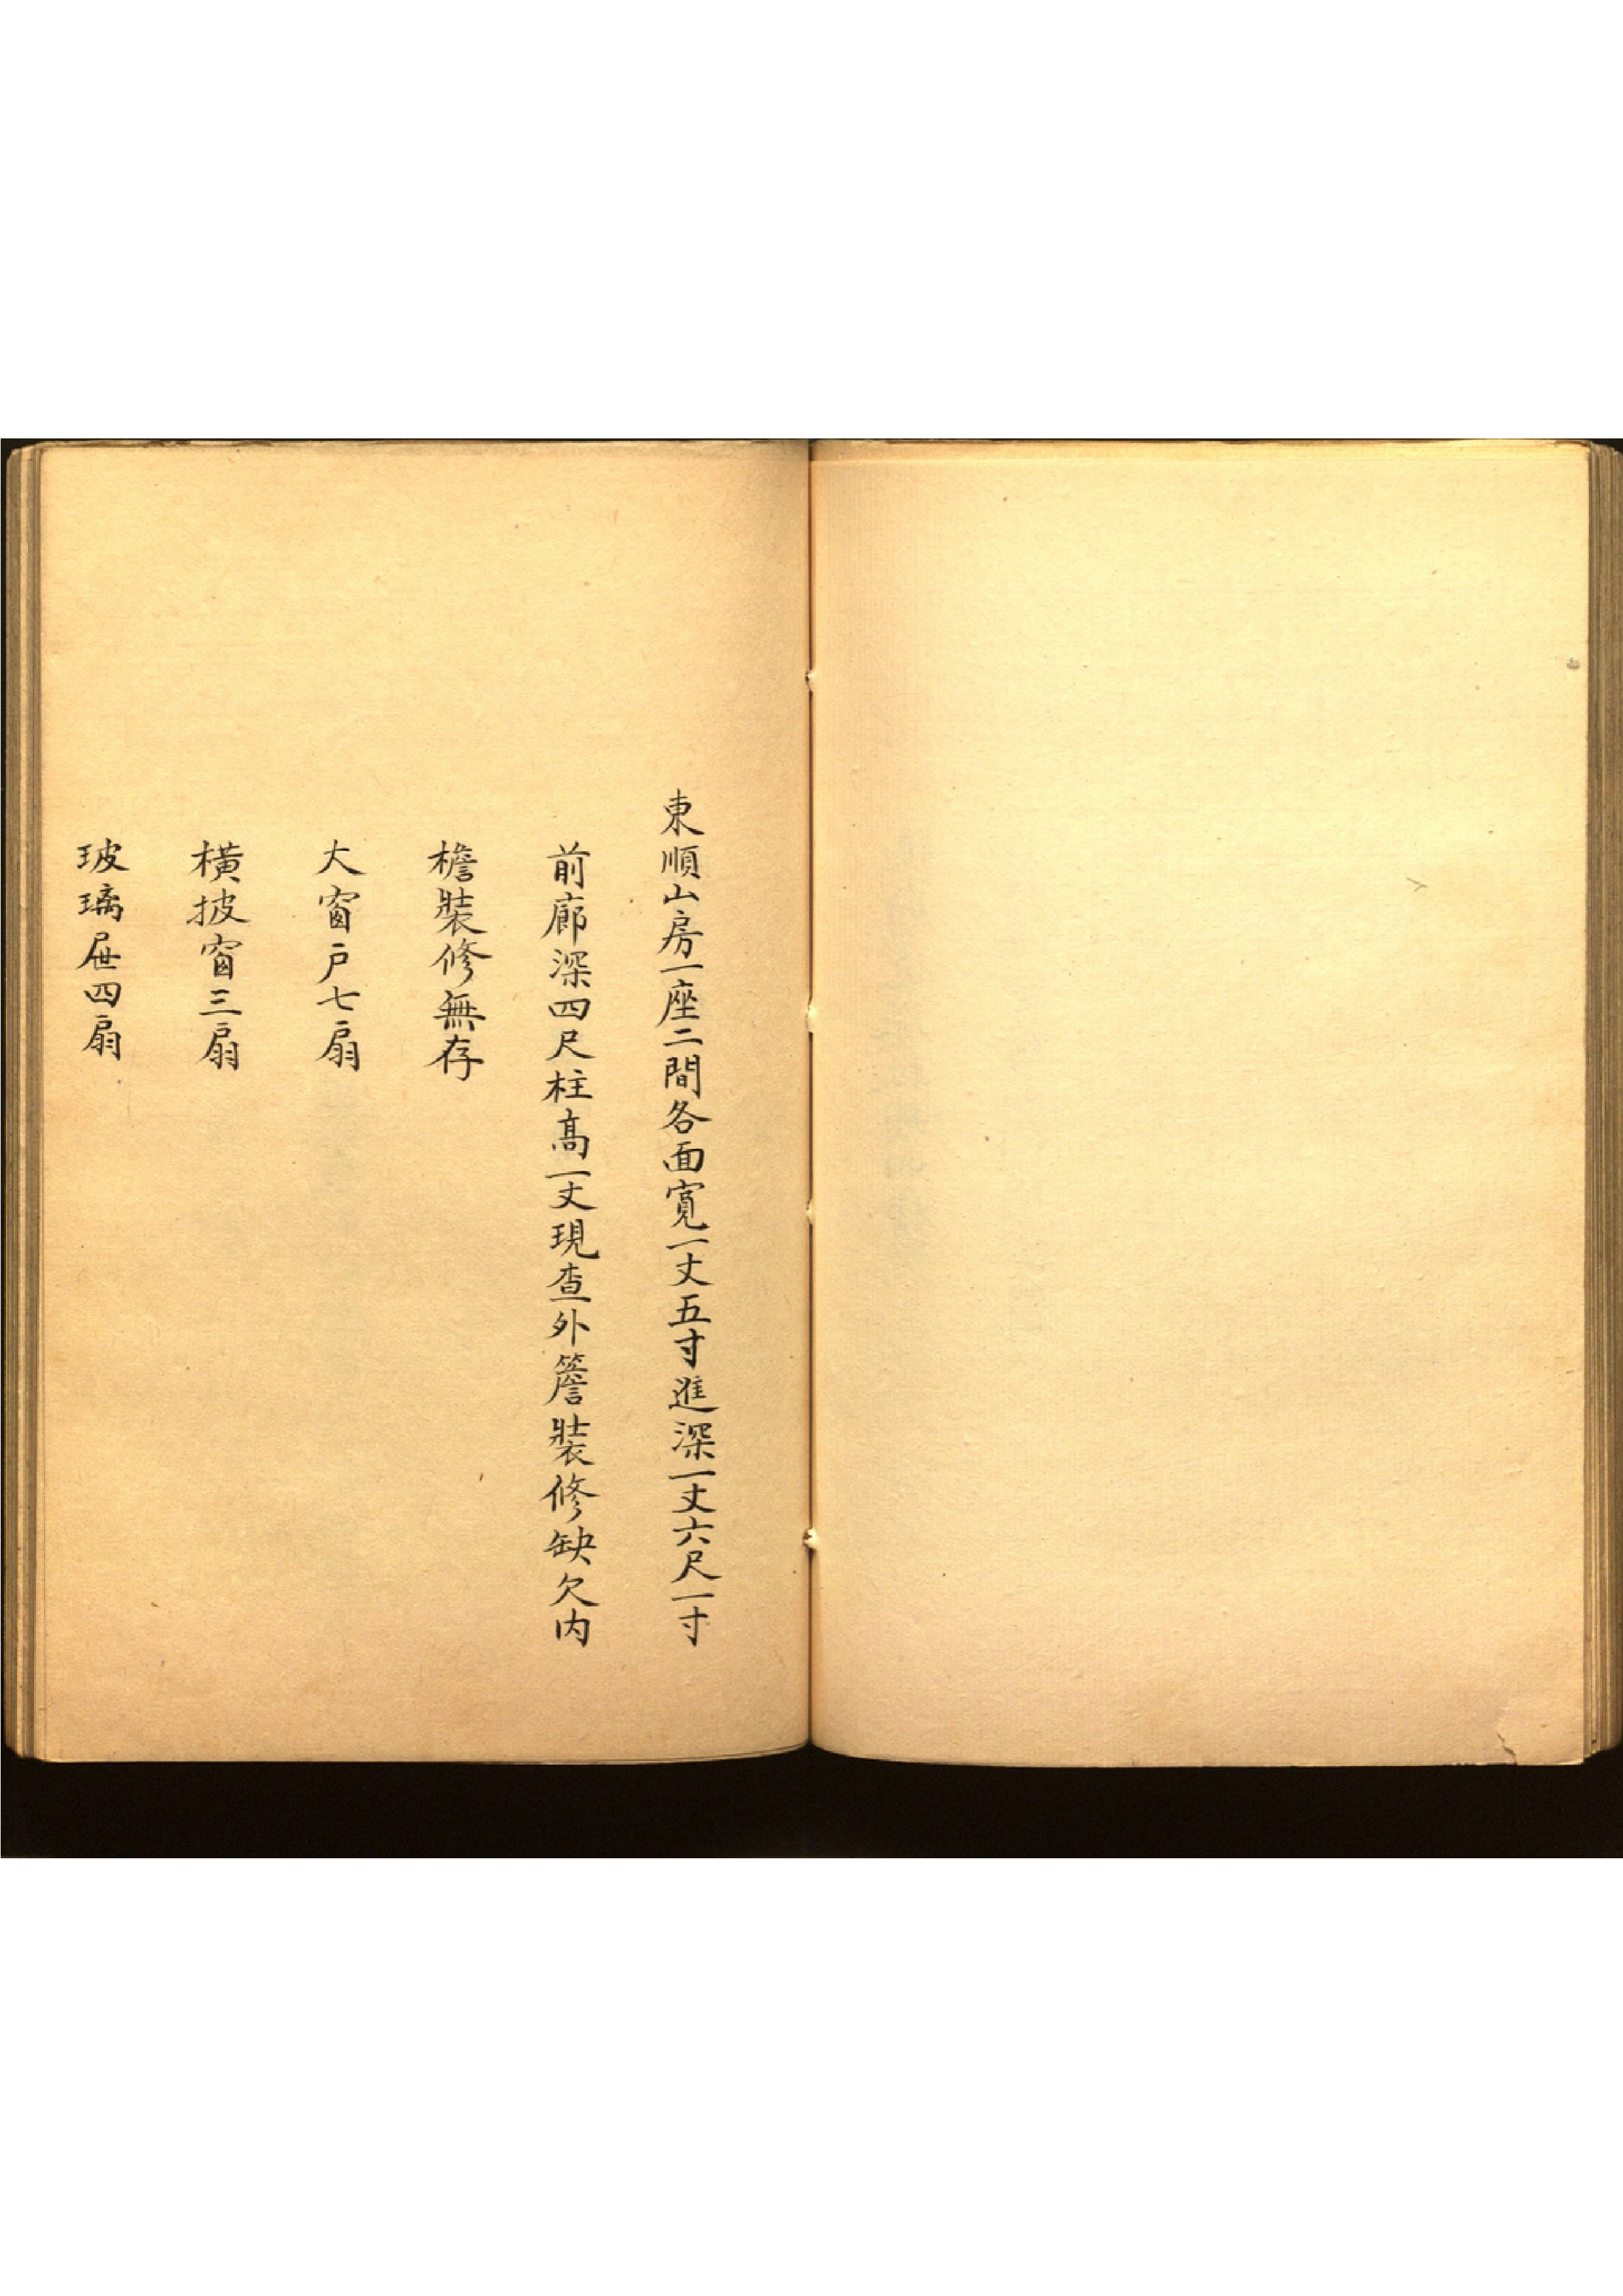 東順山房一座二間各面寬一丈五寸進深一丈六尺一寸
前廊深四尺柱高一丈現查外簷裝修缺欠內
檐裝修無存
大窗户七扇
橫披窗三扇
玻璃屉四扇